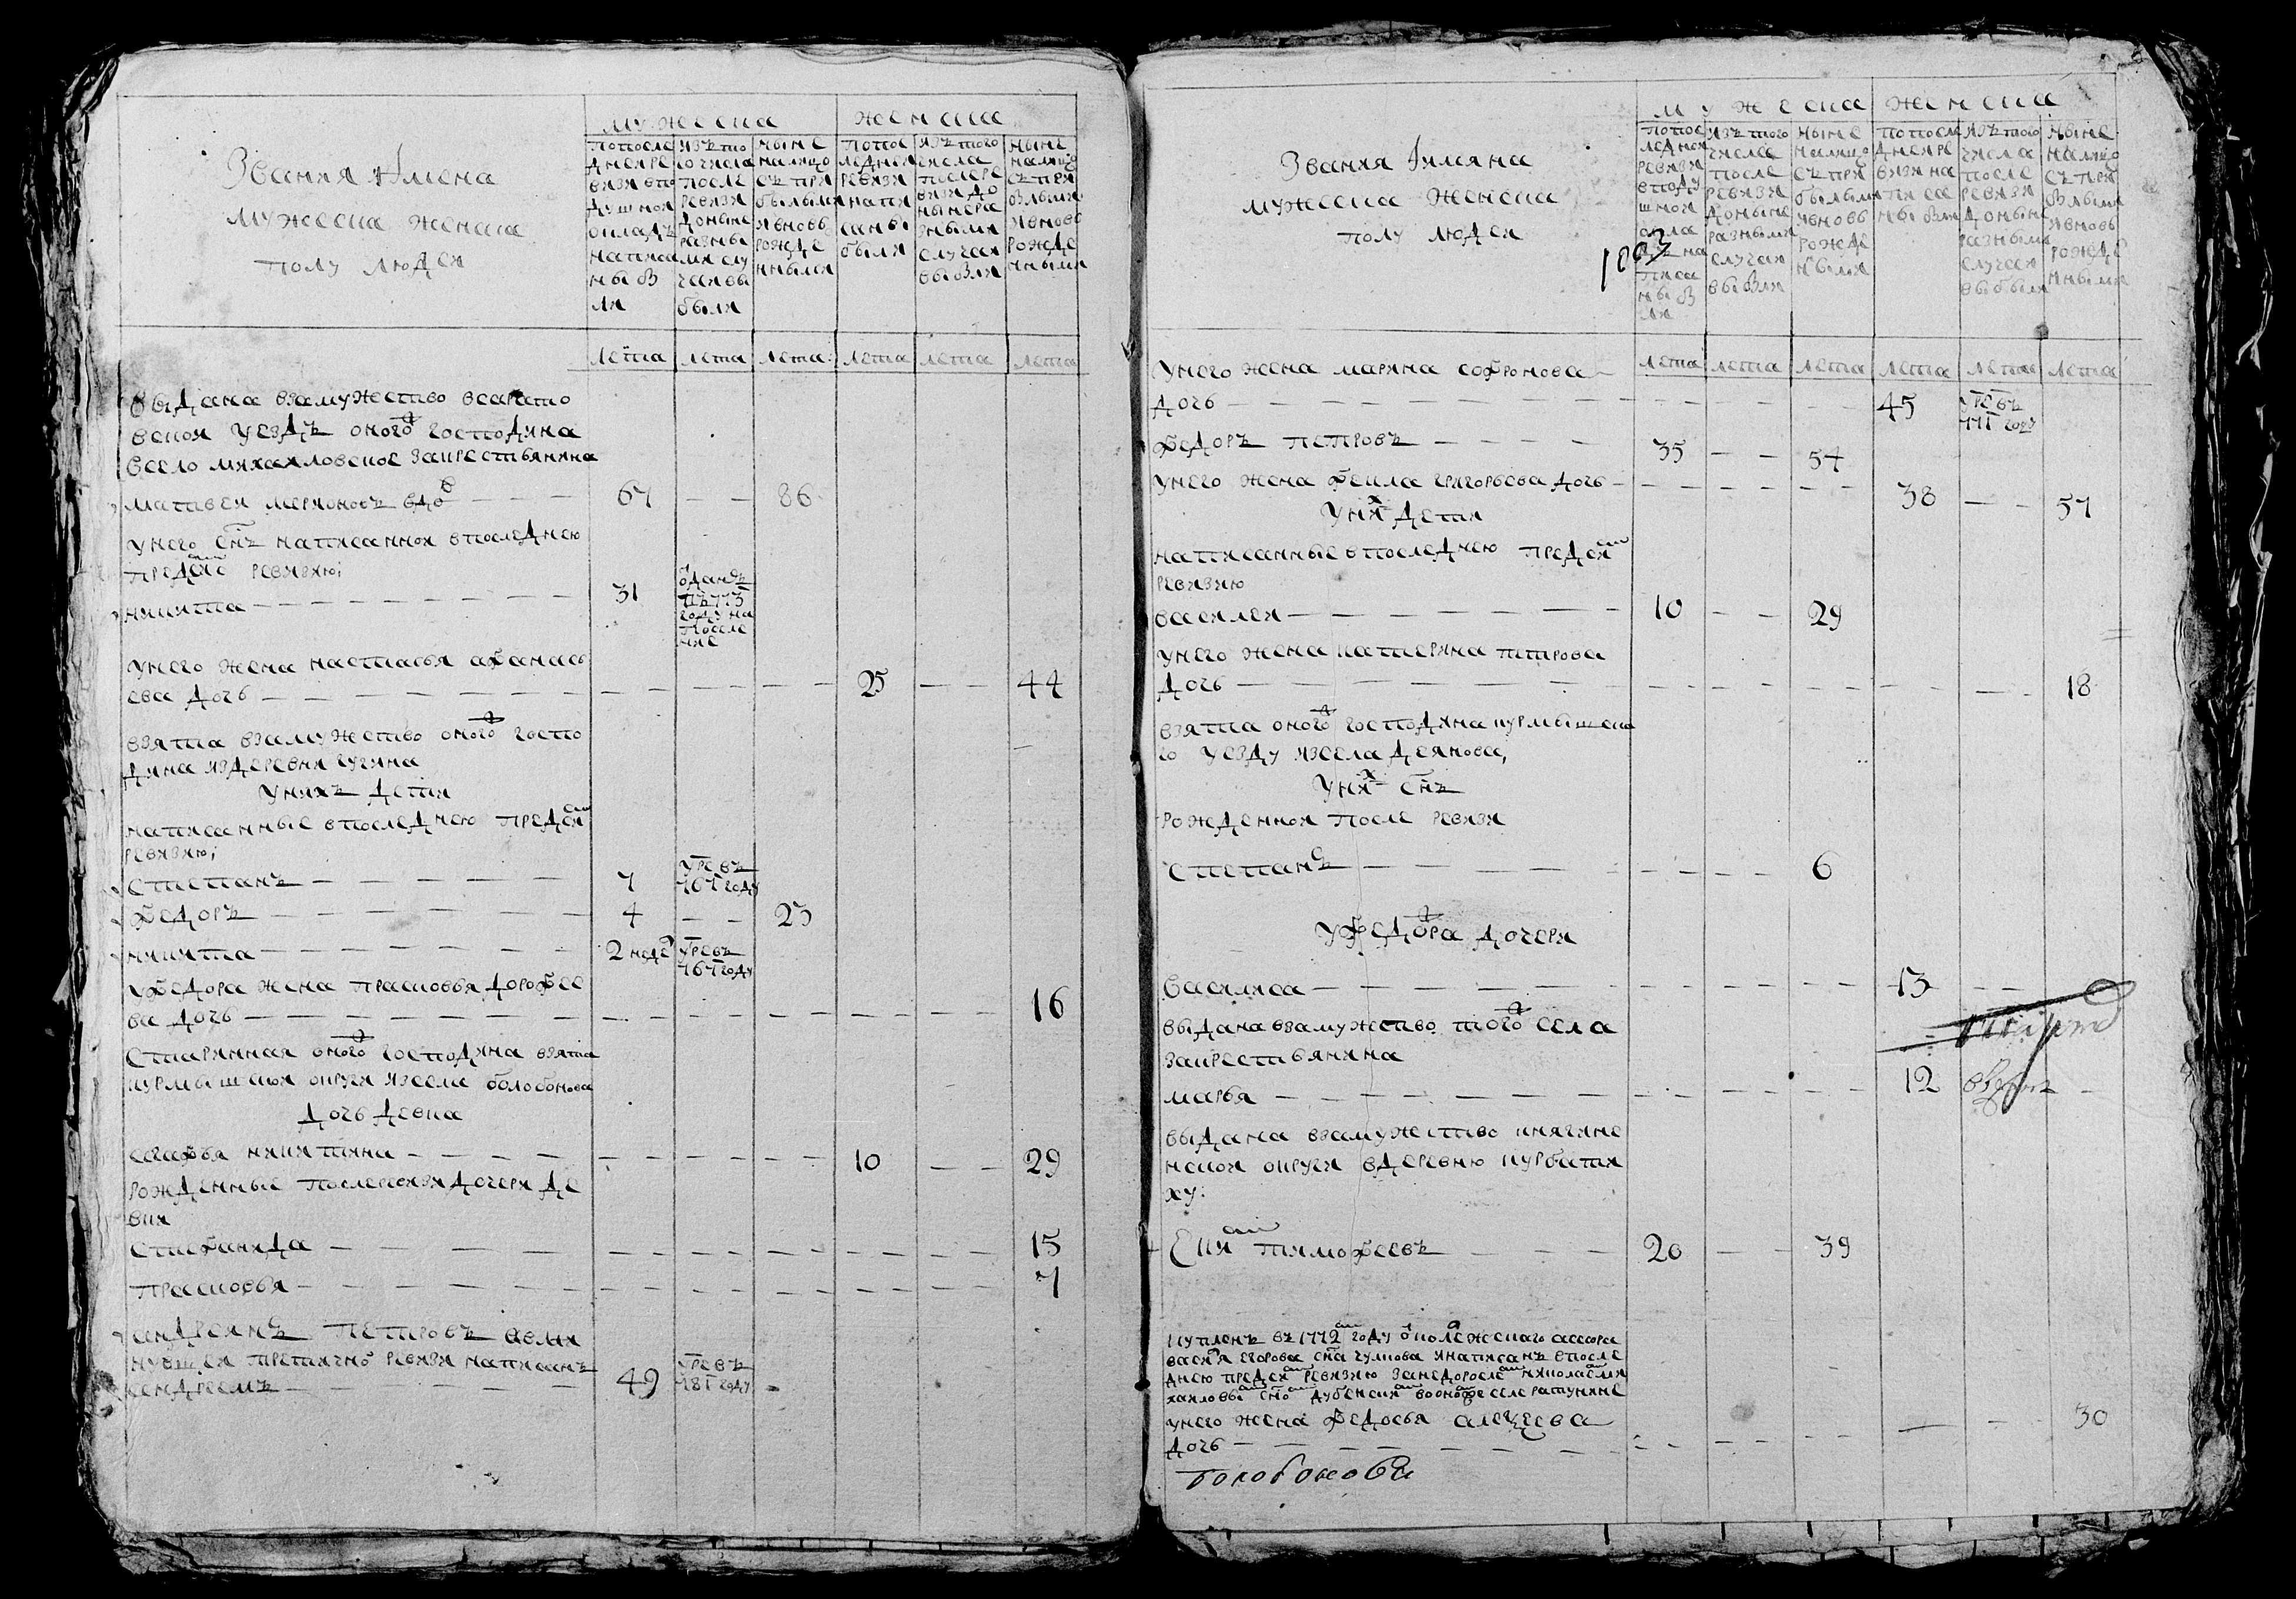 Звания Имена
мужеска женска
полу людей
мужеска женска
попосле дней ревизи вподушной окладъ написаны были
изъ того числа после ревизи доныне разными случаи выбыли
ныне налицо съ прибылыми и вновь рожденными
попоследней ревизи написаны были
изъ того числа после ревизи доныне разными случаи выбыли
ныне налицо съ прибылыми и вновь рожденными
лета лета лета лета лета лета
выдана взамужество
вской уездъ оного господина
всело михаиловское закрестьянина
матвей мерионовъ вдо 67 — — 86
унего снъ написанной впоследнею
предсию ревизию;
никита — 31 году на поселение
унего жена настасья афанась
ева дочь — 25 — — 44
взята взамужество оного госпо
дина издеревни гугина
унихъ дети
написанные впоследнею предсию
ревизию;
степанъ — 7 умре въ 767 году
федоръ — 4 — — 23
никита — 2 неде умре въ 767 году
уфедора жена прасковья дорофее
ва дочь — 16
старинная оного господина взята
курмышской округи изсела болобонова
дочь девка
агафья никитина — 10 — — 29
рожденные послеревизи дочери де
вки
стефанида — 15
прасковья — 7
андреянъ петровъ
нувшей третичной ревизи написанъ
андреемъ — 49 умре въ 781 году
Звания Имяна
мужеска женска
полу людей
мужеска женска
попоследней ревизи вподушной окладъ написаны были
изъ того числа после ревизи доныне разными случаи выбыли
ныне налицо съ прибылыми и вновь рожденными
попоследней ревизи написаны были
изъ того числа после ревизи доныне разными случаи выбыли
ныне налицо съ прибылыми и вновь рожденными
лета лета лета лета лета лета
унего жена марина софронова
дочь — 45 умре въ году
федоръ петровъ — 35 — — 54
унего жена фекла григорьева дочь — 38 — — 57
уних дети
написанные впоследнею предсию
ревизию
василей — 10 — — 29
унего жена катерина петрова
дочь — 18
взята оного господина курмышска
го уезду изсела деянова,
уних снъ
рожденной после ревизи
степанъ — 6
уфедора дочери
василиса — 13 — —
выдана взамужество того села
закрестьянина
марья — 12
выдана взамужество княгине
нской округи вдеревню курбати
ху:
тимофеевъ — 20 — — 39
купленъ въ 1772 году околежскаго асесора
василья егорова сна чулкова инаписанъ впосле
днею предсию ревизию занедорослемъ николаемъ ми
хаиловымъ сномъ дубенскимъ воономже селе ратунине
унего жена федосья алексеева
дочь — 30
болобонова